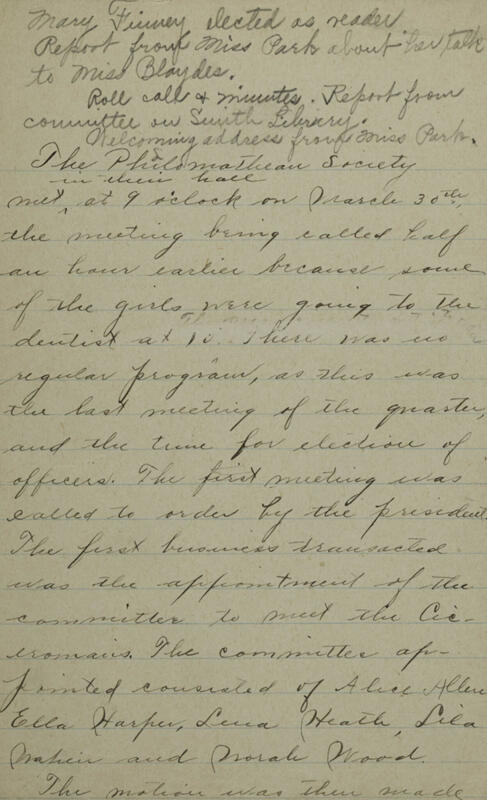 Mary Finney elected as reader
Report from Miss Park about her talk
to Miss Blaydes.
Roll call & minutes. Report from
committee on Smith Library.
Welcoming address from Miss Park.
The Philomathean Society
in their hall
met, at 9 o'clock on March 30th,
the meeting being called half
an hour earlier because some
of the girls were going to the
dentist at 10. There was no
regular program, as this was
the last meeting of the quarter,
and the time for election of
officers. The first meeting was
called to order by the president.
The first business transacted
was the appointment of the
committee to meet the Cic-
eronians. The committee ap-
pointed consisted of Alice Allen
Ella Harper, Lena Heath, Lila
and Norah Wood.
The motion was then made